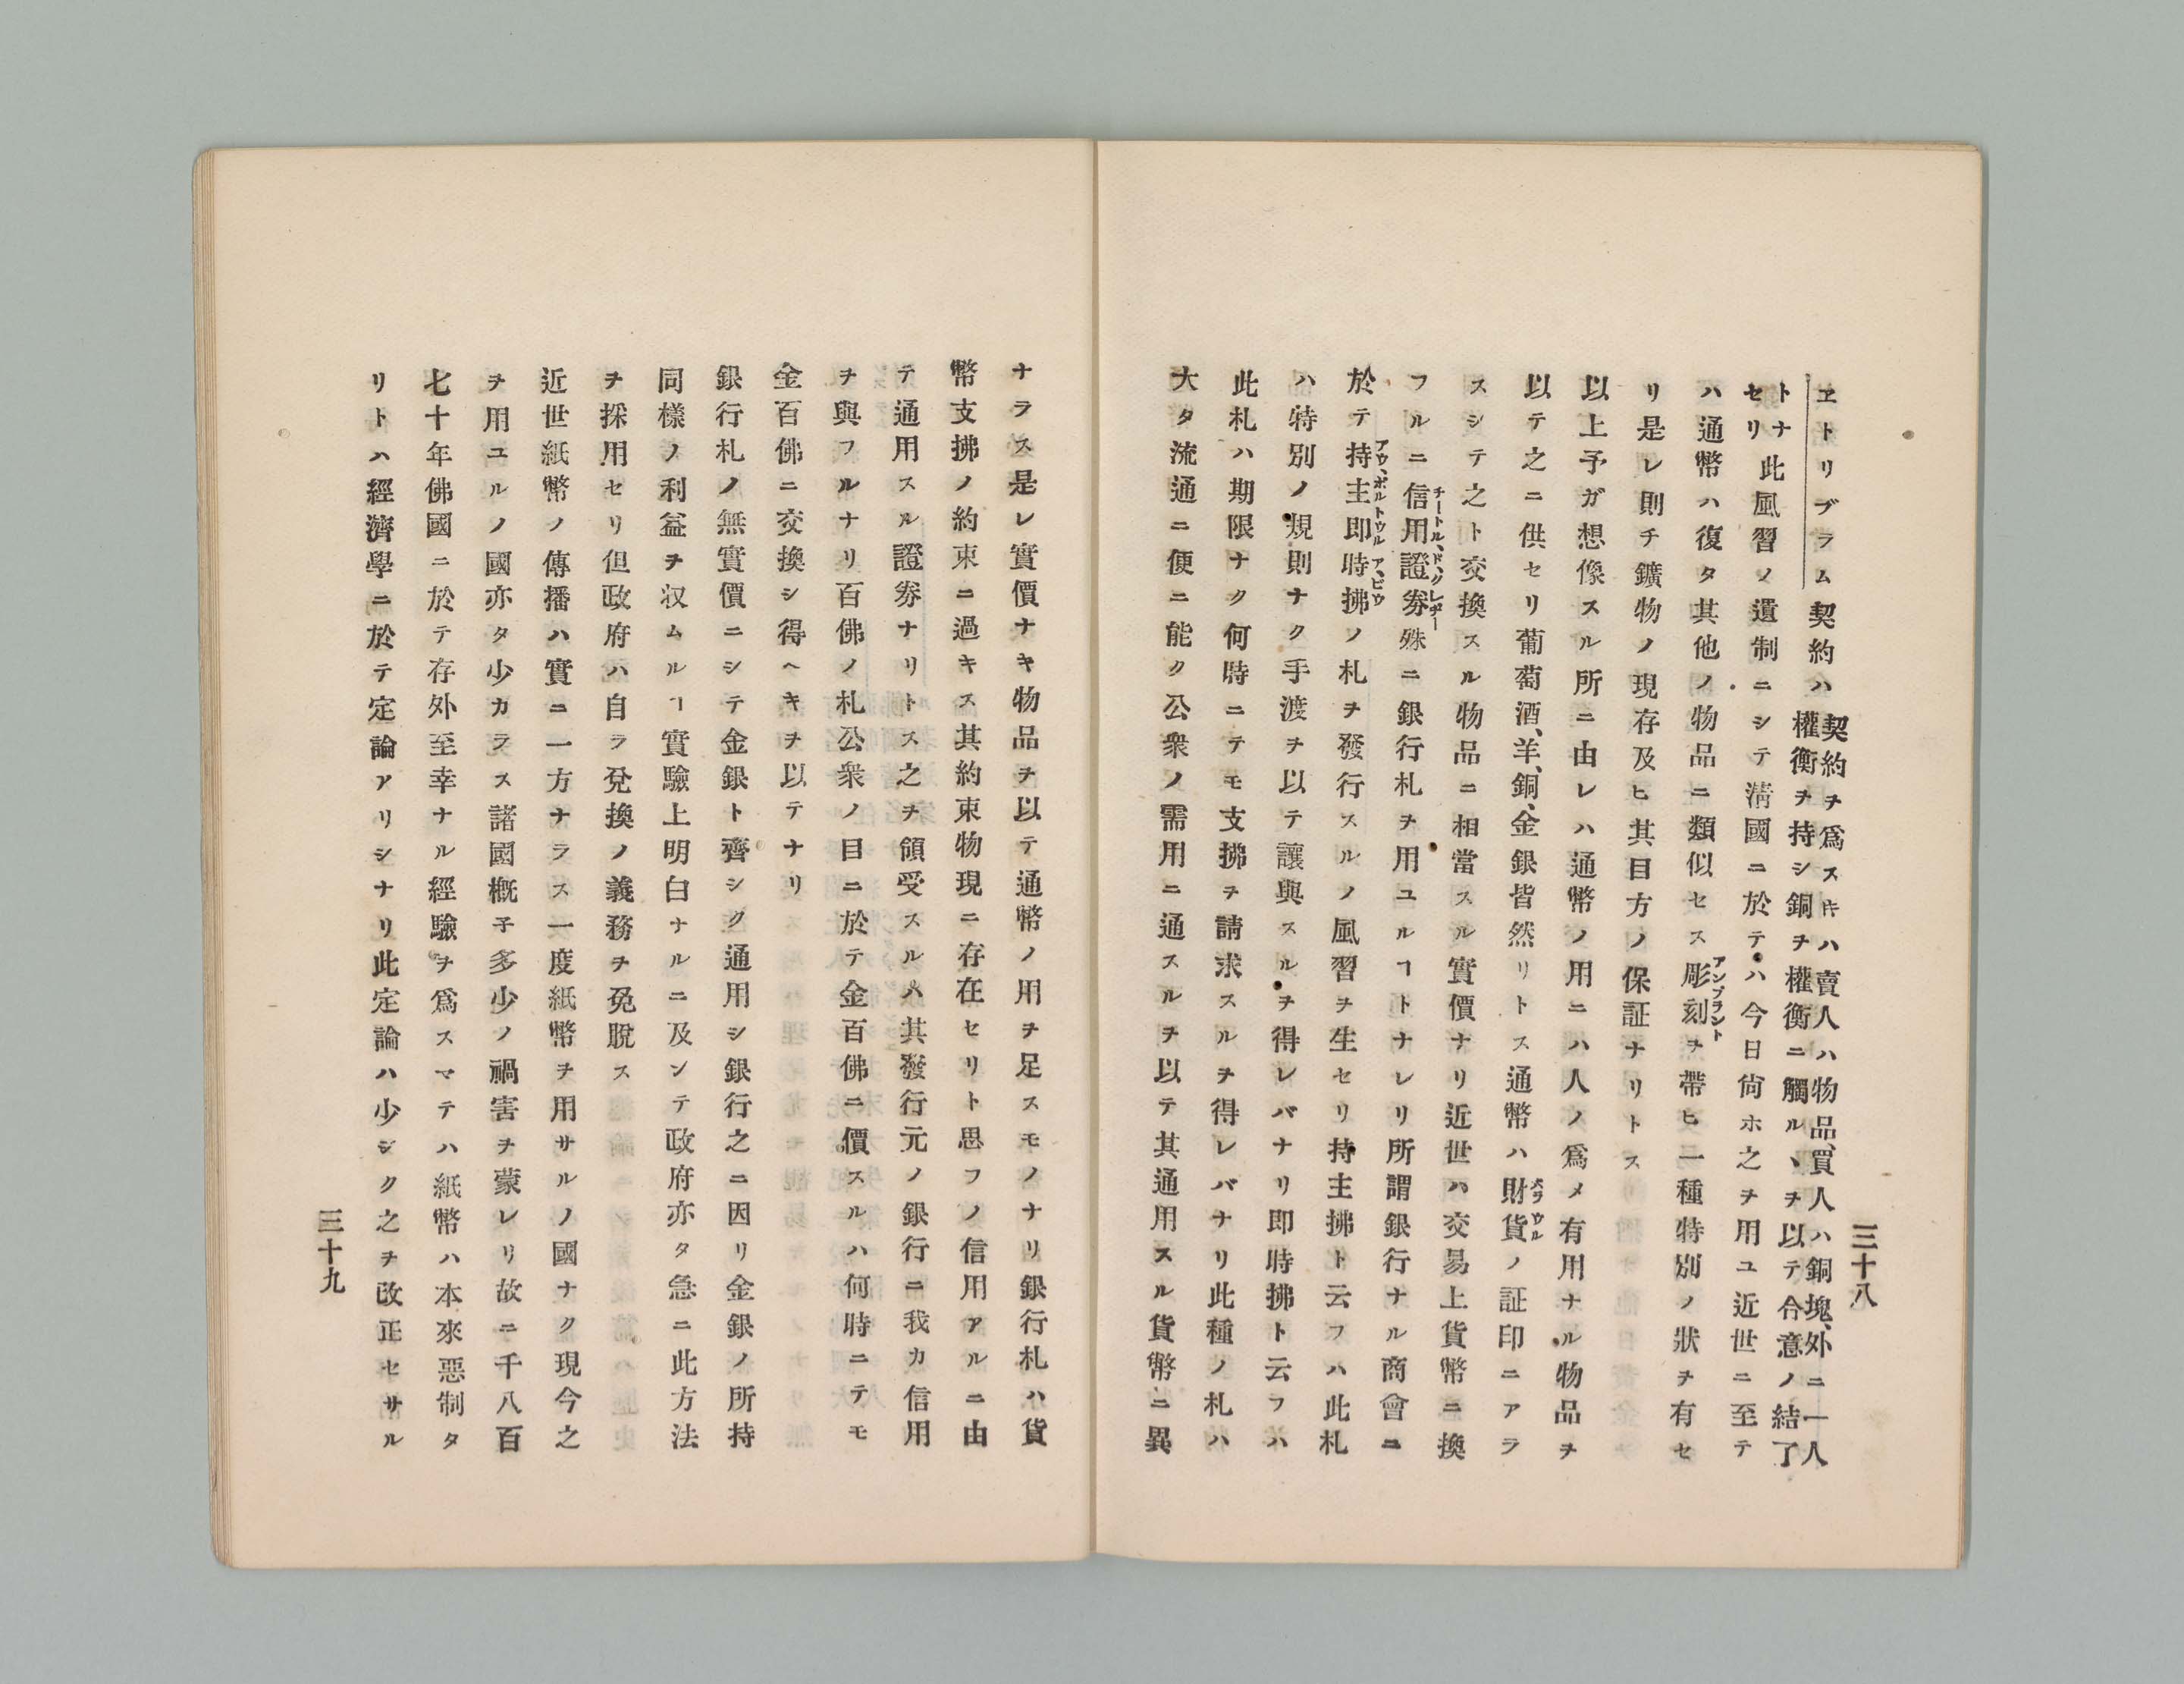 三十八
ヱトリブラム契約ハ契約ヲ爲スキハ賣人ハ物品、買人ハ銅塊、外ニ一人
權衡ヲ持シ銅ヲ權衡ニ觸ルヽヲ以テ合意ノ結了
トナセリ此風習ノ遺制ニシテ淸國ニ於テハ今日尙ホ之ヲ用ユ近世ニ至テ
ハ通幣ハ復タ其他ノ物品ニ類似セス彫刻ヲ帶ヒ一種特別ノ狀ヲ有セ
アンプラント
リ是レ則チ鑛物ノ現存及ヒ其目方ノ保証ナリトス
以上予ガ想像スル所ニ由レハ通幣ノ用ニハ人ノ爲メ有用ナル物品ヲ
以テ之ニ供セリ葡萄酒、羊、銅、金銀皆然リトス通幣ハ財貨ノ証印ニアラ
スシテ之ト交換スル物品ニ相當スル實價ナリ近世ハ交易上貨幣ニ換
フルニ信用證券殊ニ銀行札ヲ用ユルヿトナレリ所謂銀行ナル商會ニ
チートル、ド、クレヂー
於テ持主即時拂ノ札ヲ發行スルノ風習ヲ生セリ持主拂ト云フハ此札
アウ、ポルトウル ア、ビウ
ハ特別ノ規則ナク手渡ヲ以テ讓與スルヲ得レバナリ即時拂ト云フハ
此札ハ期限ナク何時ニテモ支拂ヲ請求スルヲ得レバナリ此種ノ札ハ
大タ流通ニ便ニ能ク公衆ノ需用ニ通スルヲ以テ其通用スル貨幣ニ異
ナラス是レ實價ナキ物品ヲ以テ通幣ノ用ヲ足スモノナリ銀行札ハ貨
幣支拂ノ約束ニ過キス其約束物現ニ存在セリト思フノ信用アルニ由
テ通用スル證券ナリトス之ヲ領受スル人其發行元ノ銀行ニ我カ信用
ヲ與フルナリ百佛ノ札公衆ノ目ニ於テ金百佛ニ價スルハ何時ニテモ
金百佛ニ交換シ得ヘキヲ以テナリ
銀行札ノ無實價ニシテ金銀ト齊シク通用シ銀行之ニ因リ金銀ノ所持
同樣ノ利益ヲ収ムルヿ實驗上明白ナルニ及ンテ政府亦タ急ニ此方法
ヲ採用セリ但政府ハ自ラ兌換ノ義務ヲ免脫ス
近世紙幣ノ傳播ハ實ニ一方ナラス一度紙幣ヲ用サルノ國ナク現今之
ヲ用ユルノ國亦タ少カラス諸國槪子多少ノ禍害ヲ蒙レリ故ニ千八百
七十年佛國ニ於テ存外至幸ナル經驗ヲ爲スマテハ紙幣ハ本來惡制タ
リトハ經濟學ニ於テ定論アリシナリ此定論ハ少シク之ヲ改正セサル
三十九